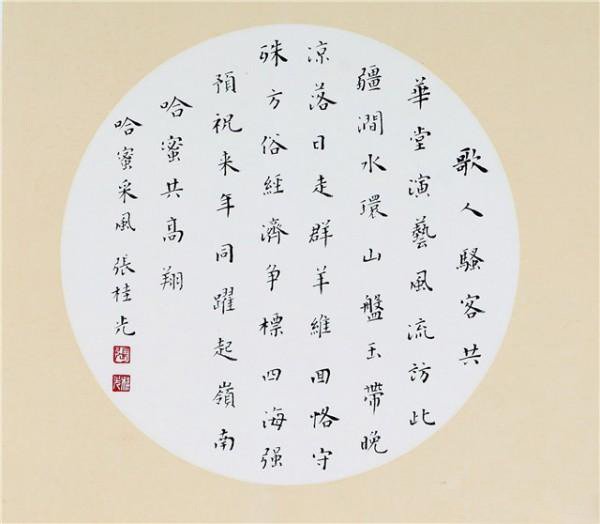 歌人騷客共
華堂演藝風流訪此
疆澗水環山盤玉帶晚
涼落日走群羊維回恪守
殊方俗經濟争標四海强
預祝来年同躍起嶺南
哈蜜共高翔
哈蜜采風張桂光